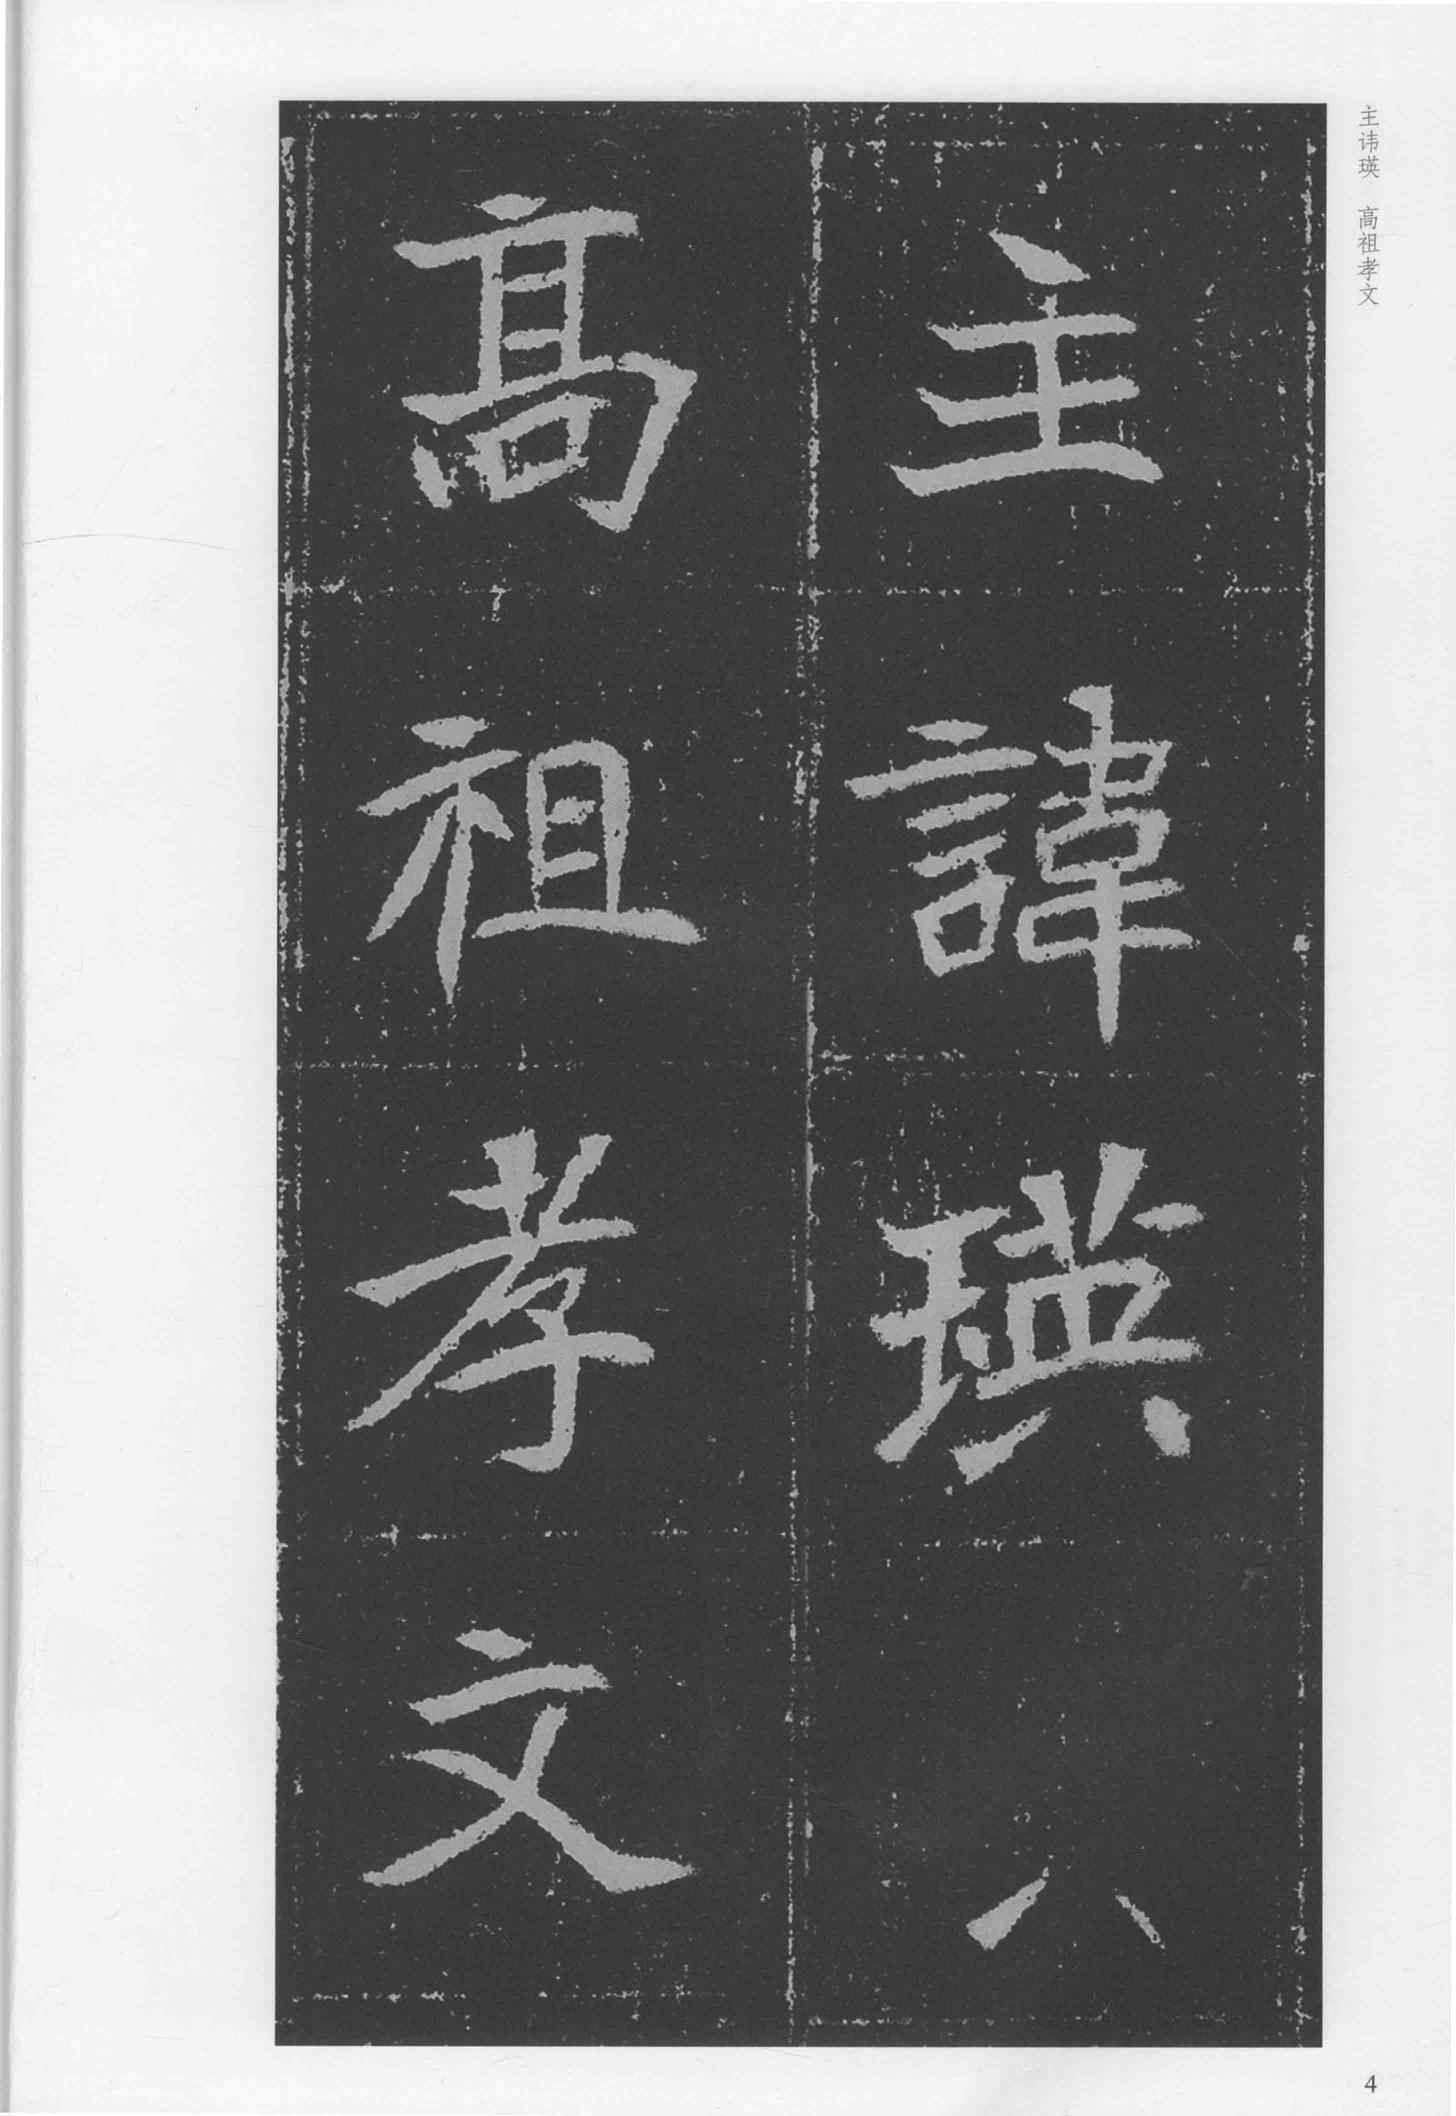 主讳瑛 高祖孝文
主諱瑛
高祖孝文
4